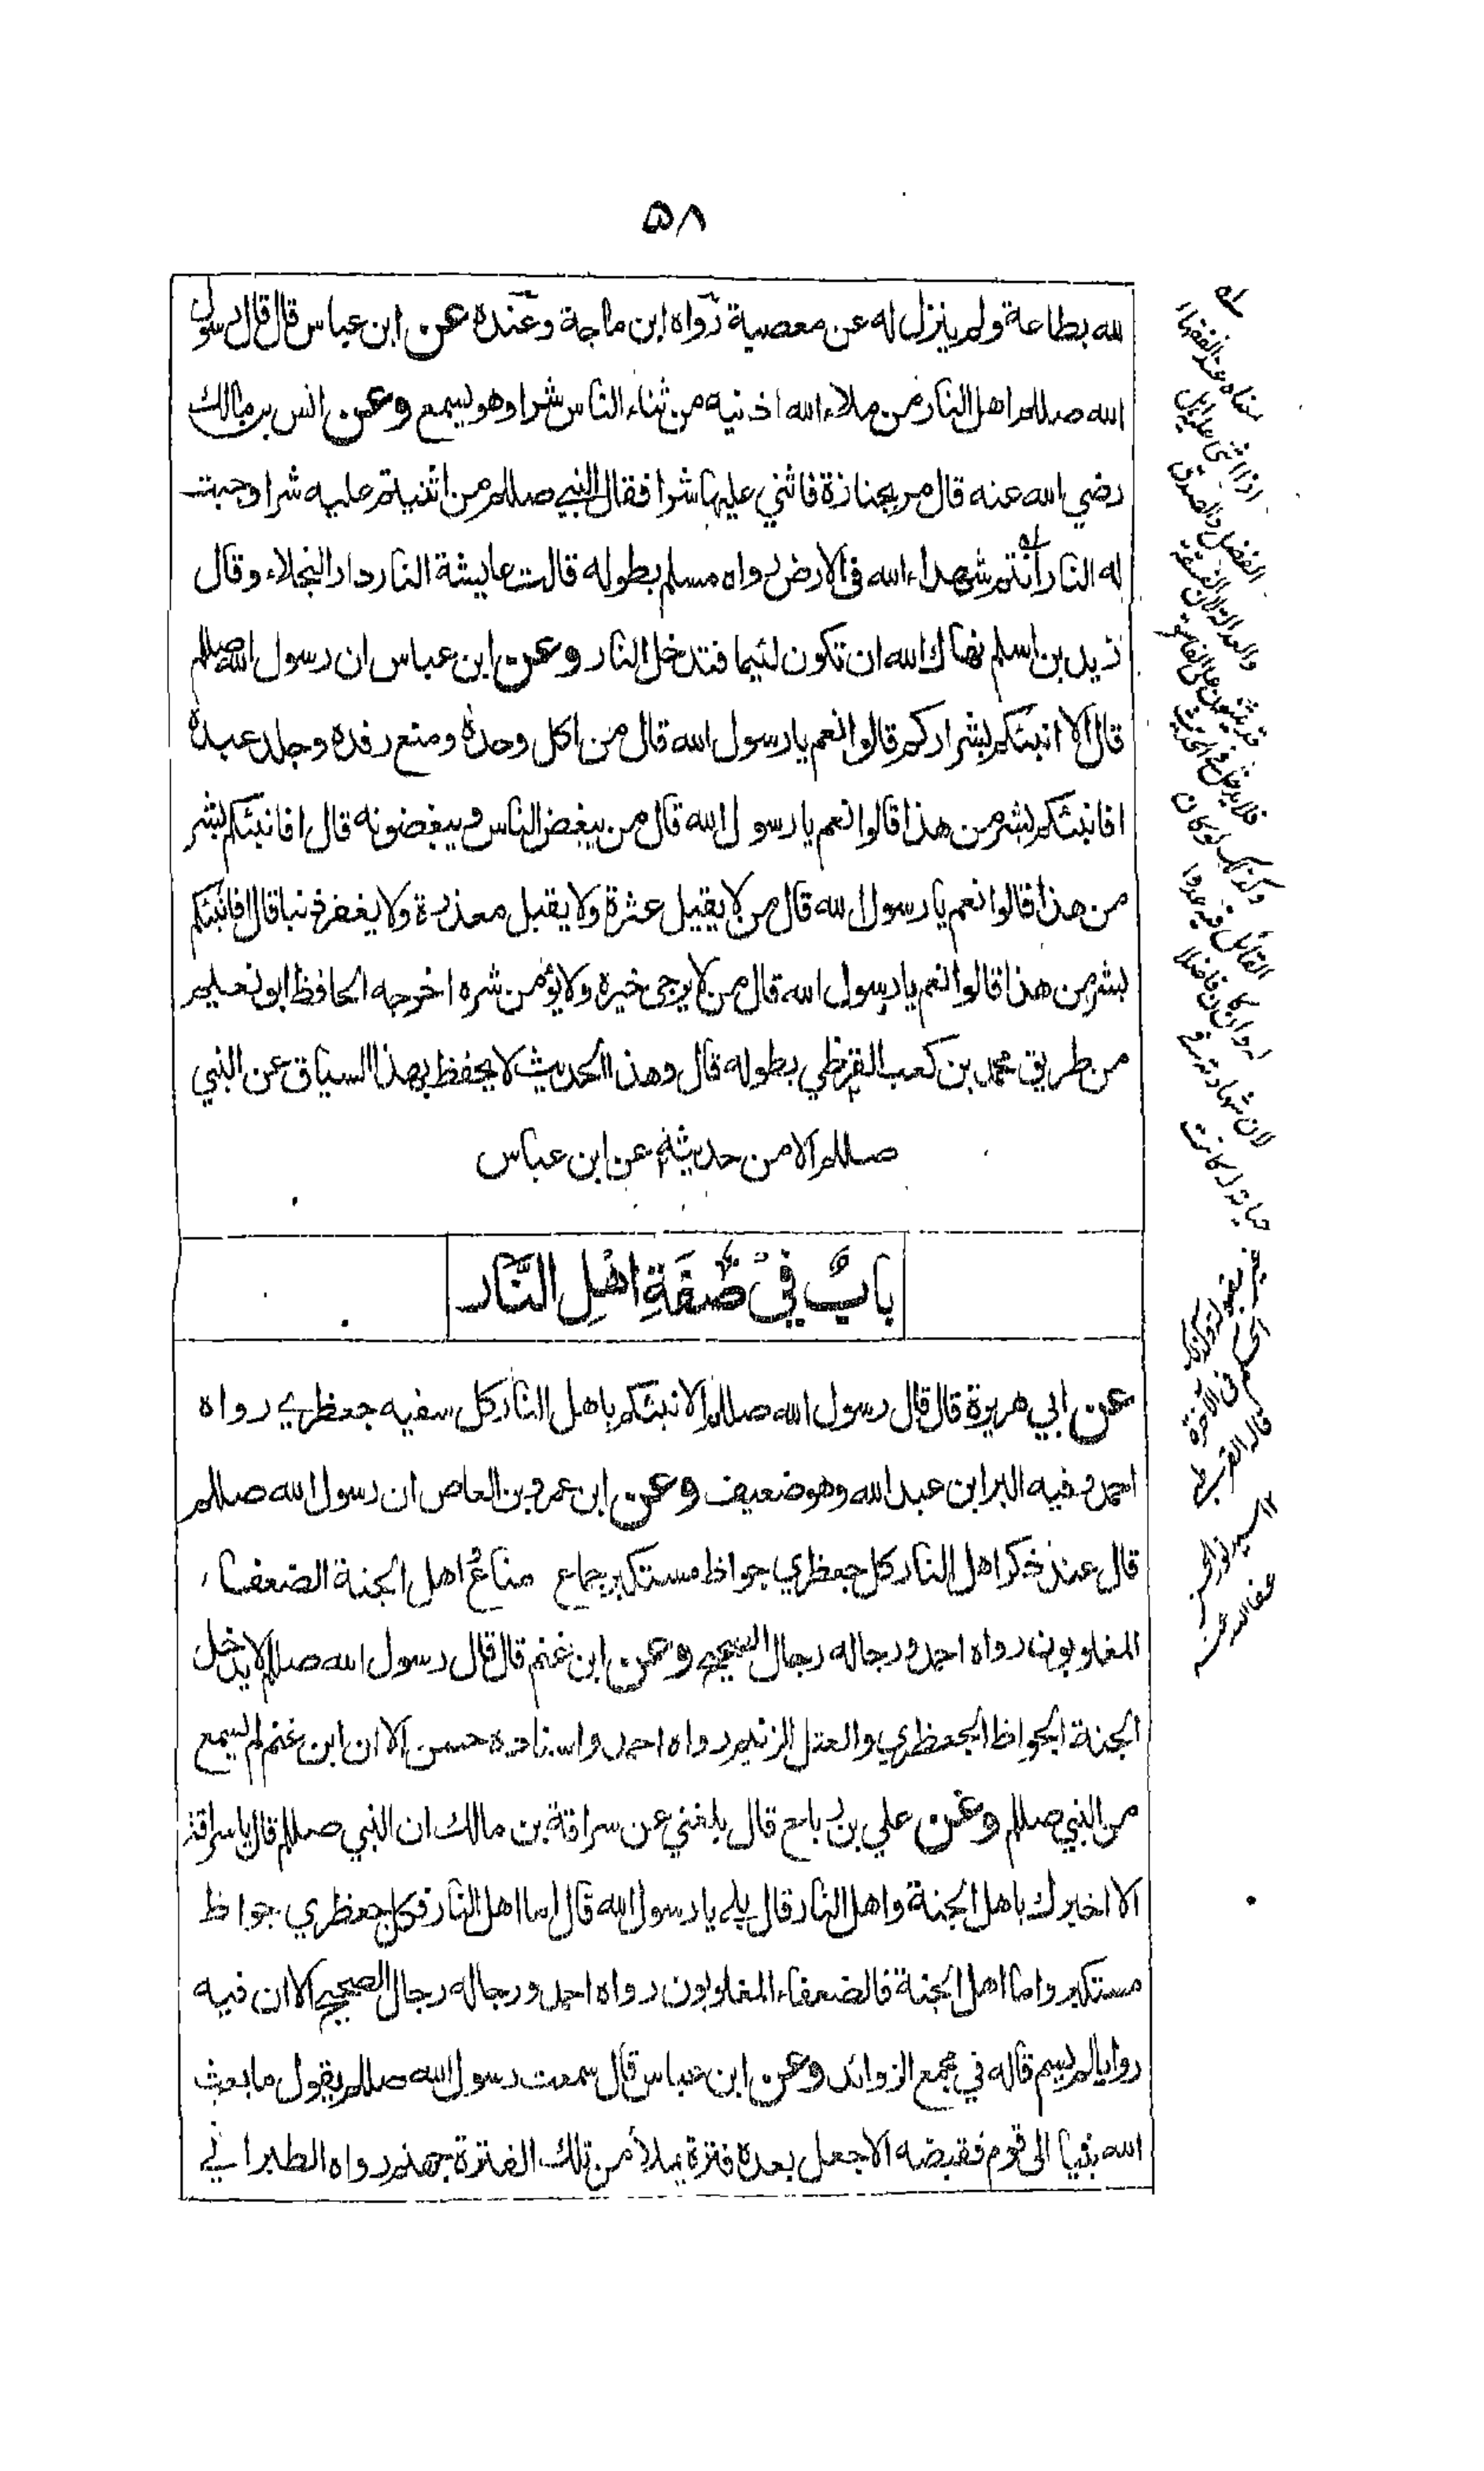 ٥٨
لله بطاعة ولم ينزل له عن معصية رواه ابن ماجة وعنده عن ابن عباس قال قال رسول
الله صللم اهل النار من ملاء الله اذنيه من ثناء الناس شرا وهو يسمع وعن انس بن مالك
رضي الله عنه قال مر بجنازة فاثني عليها شرا فقال النبي صللم من اثنيتم عليه شرا وجبت
له النار أنتم شهداء الله في الارض رواه مسلم بطوله قالت عايشة النار دار البخلاء وقال
زيد بن اسلم نهاك الله ان تكون لئيما فتدخل النار وعن ابن عباس ان رسول الله صللم
قال الا انبئكم بشراركم قالوا نعم يا رسول الله قال من اكل وحده ومنع رفده وجلد عبده
افانبئكم بشر من هذا قالوا نعم يا رسول الله قال من يبغض الناس ويبغضونه قال افانبئكم بشر
من هذا قالوا نعم يا رسول الله قال من لا يقيل عثرة ولا يقبل معذرة ولا يغفر ذنبا قال افانبئكم
بشر من هذا قالوا نعم يا رسول الله قال من لا يرجى خيره ولا يؤمن شره اخرجه الحافظ ابو نعيم
من طريق محمد بن كعب القرظي بطوله قال وهذا الحديث لا يحفظ بهذا السياق عن النبي
صللم الا من حديثه عن ابن عباس
باب في صفة اهل النار
عن ابي هريرة قال قال رسول الله صللم الا انبئكم باهل النار كل سفيه جعظري رواه
احمد وفيه البرا بن عبد الله وهو ضعيف وعن ابن عمرو بن العاص ان رسول الله صللم
قال عند ذكر اهل النار كل جعظري جواظ مستكبر جماع مناع اهل الجنة الضعفاء
المغلوبون رواه احمد ورجاله رجال الصحيح وعن ابن غنم قال قال رسول الله صللم لا يدخل
الجنة الجواظ الجعظري والعتل الزنيم رواه احمد واسناده حسن الا ان ابن غنم لم يسمع
من النبي صللم وعن علي بن رباح قال بلغني عن سراقة بن مالك ان النبي صللم قال يا سراقة
الا اخبرك باهل الجنة واهل النار قال بلى يا رسول الله قال اما اهل النار فكل جعظري جواظ
مستكبر واما اهل الجنة فالضعفاء المغلوبون رواه احمد ورجاله رجال الصحيح الا ان فيه
راويا لم يسم قاله في مجمع الزوائد وعن ابن عباس قال سمعت رسول الله صللم يقول ما بعث
الله نبيا الى قوم فقبضه الا جعل بعده فترة يملأ من تلك الفترة جهنم رواه الطبراني
له
معناه عند الفقهاء
اذا اثنى عليه اهل
الفضل والصدق
والعدالة لان الفسقة
قد يثنون على الفاسق
فلا يدخل في الحديث
وكذلك لو كان
القائل فيه عدوا
له وان كان فاضلا
لان شهادته في
حياته كانت
غير مقبولة وكذلك
الحكم في الآخرة
قاله القرطبي
١٢ سيد نور الحسن
عفا الله عنه